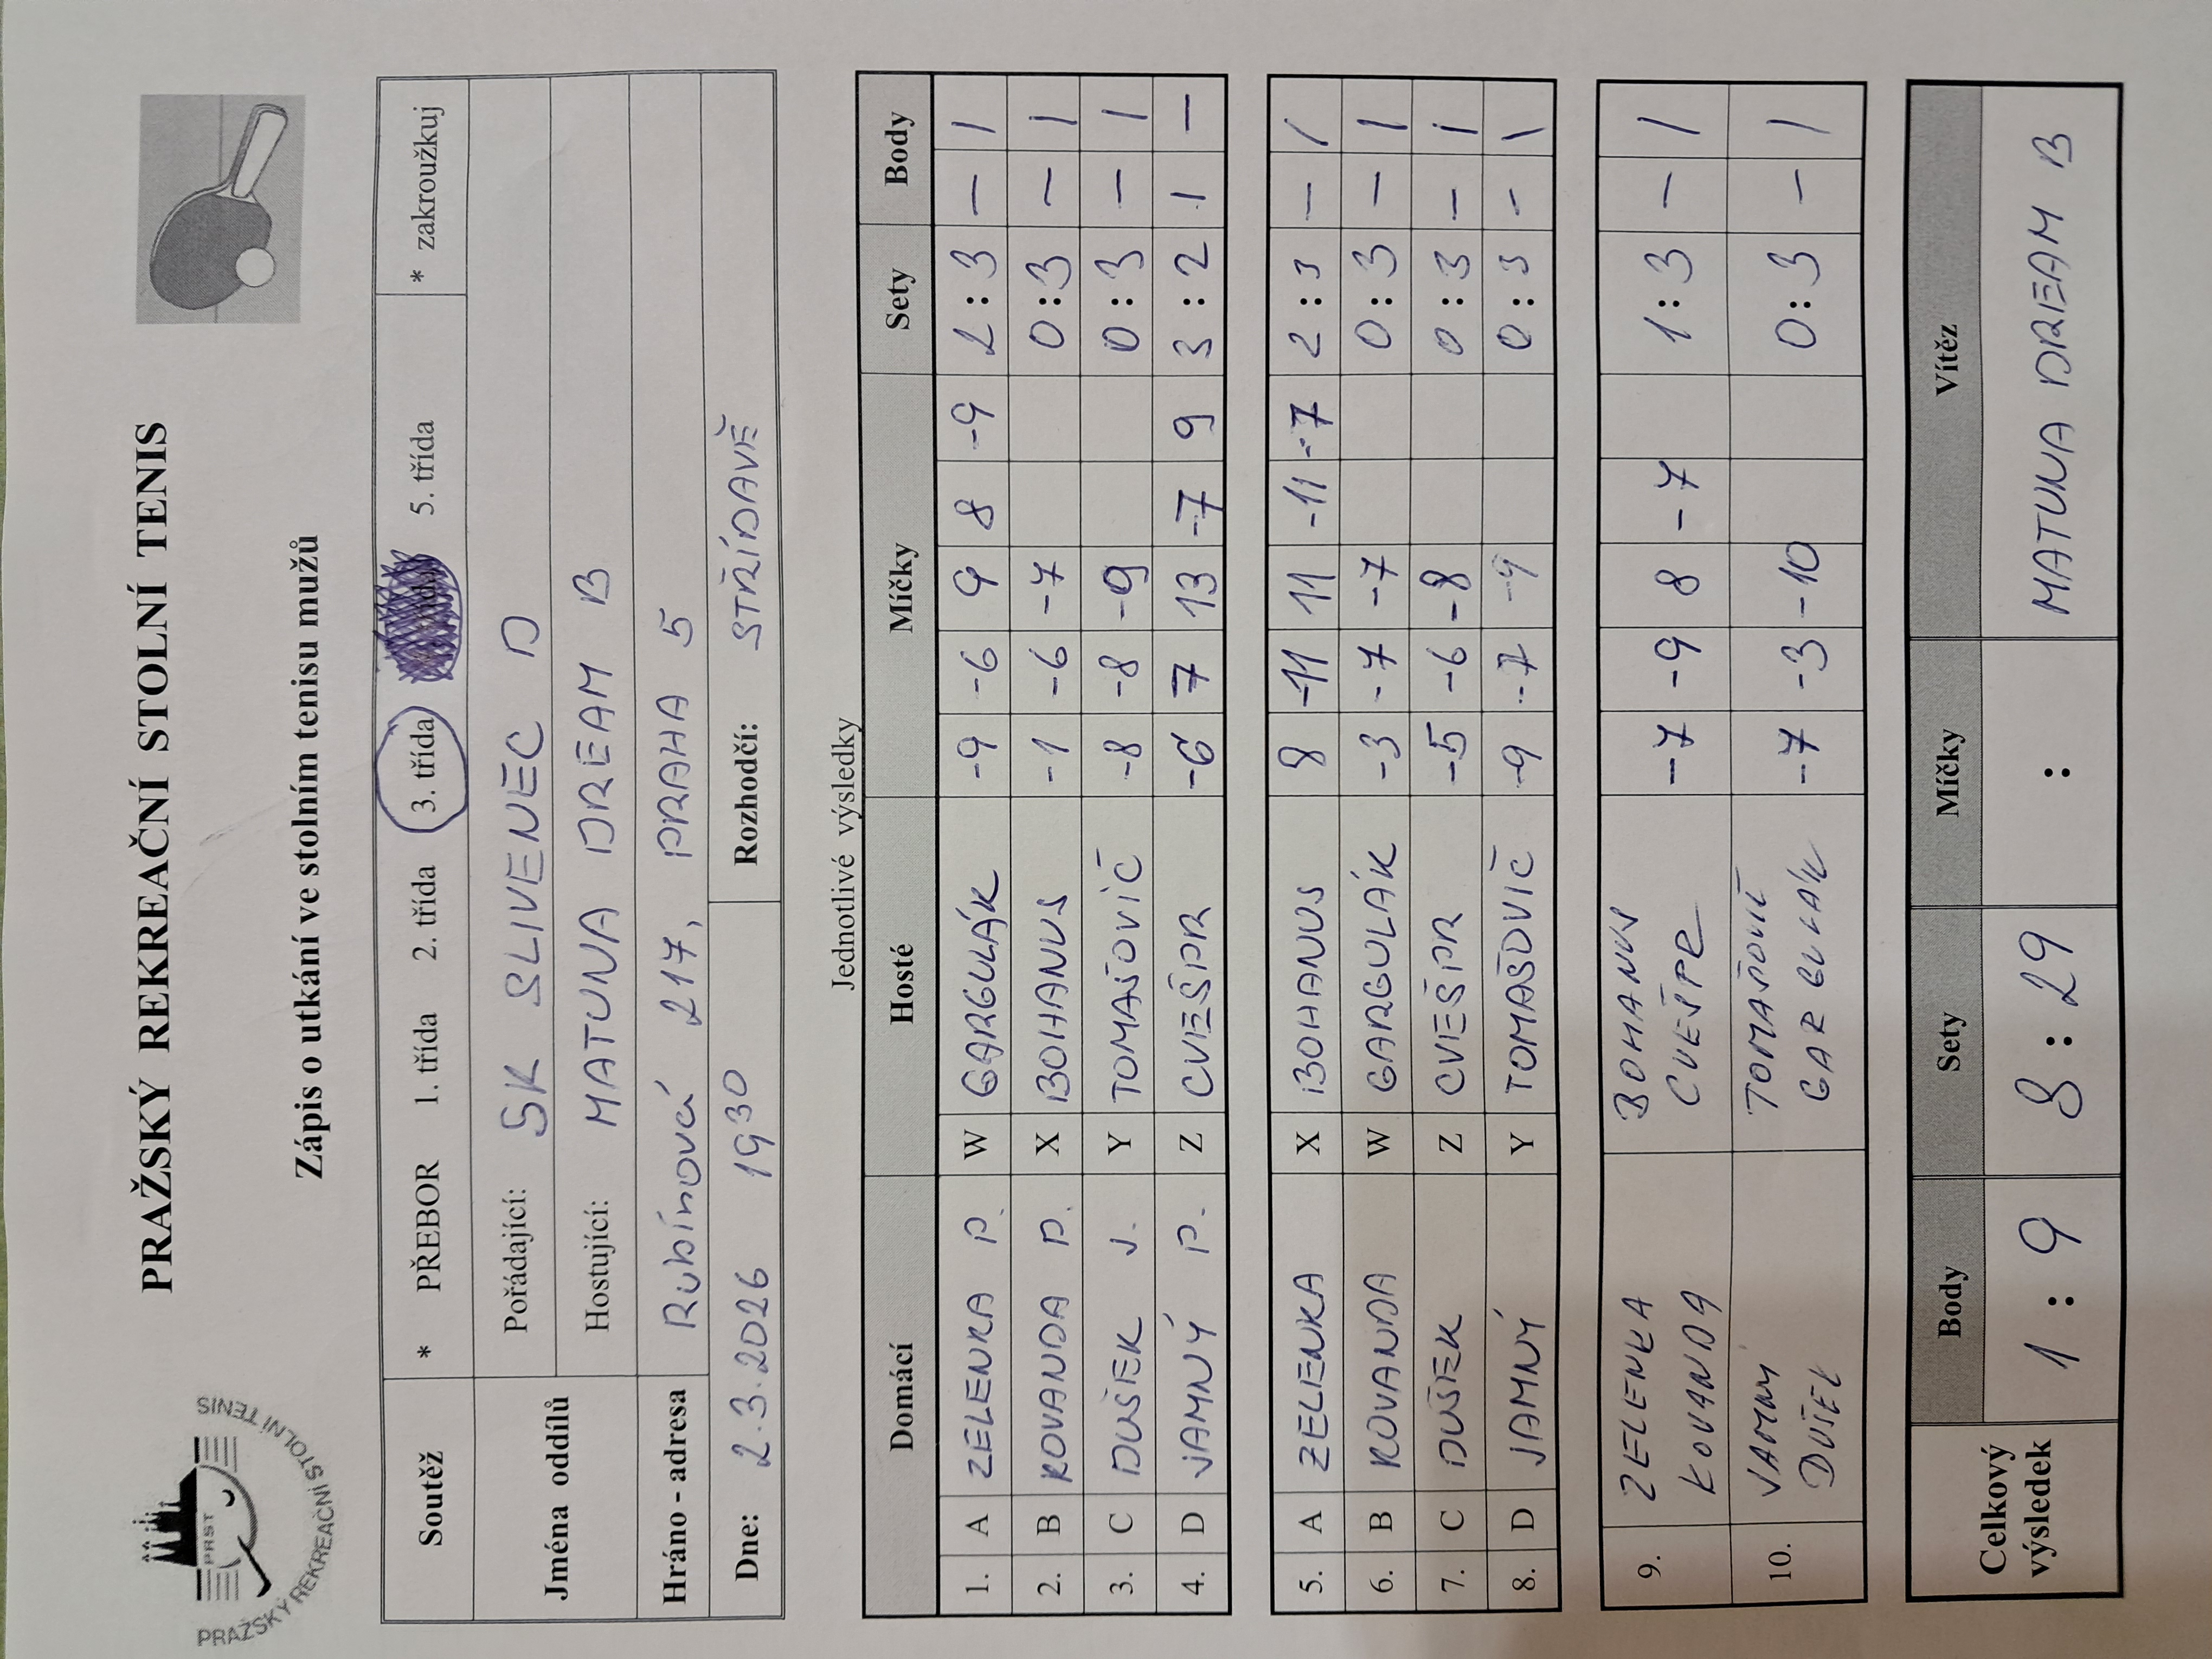 PRAŽSKÝ REKREAČNÍ STOLNÍ TENIS
PRST
PRAŽSKÝ REKREAČNÍ STOLNÍ TENIS
Zápis o utkání ve stolním tenisu mužů
Soutěž * PŘEBOR 1. třída 2. třída 3. třída 5. třída * zakroužkuj
Jména oddílů Pořádající: SK SLIVENEC D
Hostující: MATUNA DREAM B
Hráno - adresa Rubínová 217, PRAHA 5
Dne: 2.3.2026 19 30 Rozhodčí: STŘÍDAVĚ
Jednotlivé výsledky
Domácí Hosté Míčky Sety Body
1. A ZELENKA P. W GARGULÁK -9 -6 9 8 -9 2 : 3 — 1
2. B KOVANDA P. X BOHANUS -1 -6 -7 0 : 3 — 1
3. C DUŠEK J. Y TOMAŠOVIČ -8 -8 -9 0 : 3 — 1
4. D JAMNÝ P. Z CVEŠPR -6 7 13 -7 9 3 : 2 1 —
5. A ZELENKA X BOHANUS 8 -11 11 -11 -7 2 : 3 — 1
6. B KOVANDA W GARGULÁK -3 -7 -7 0 : 3 — 1
7. C DUŠEK Z CVEŠPR -5 -6 -8 0 : 3 — 1
8. D JAMNÝ Y TOMAŠOVIČ -9 -7 -9 0 : 3 - 1
9. ZELENKA BOHANUS -7 -9 8 -7 1 : 3 — 1
KOVANDA CVEŠPR
10. JAMNÝ TOMAŠOVIČ -7 -3 -10 0 : 3 — 1
DUŠEK GARGULÁK
Celkový výsledek Body Sety Míčky Vítěz
1 : 9 8 : 29 : MATUNA DREAM B